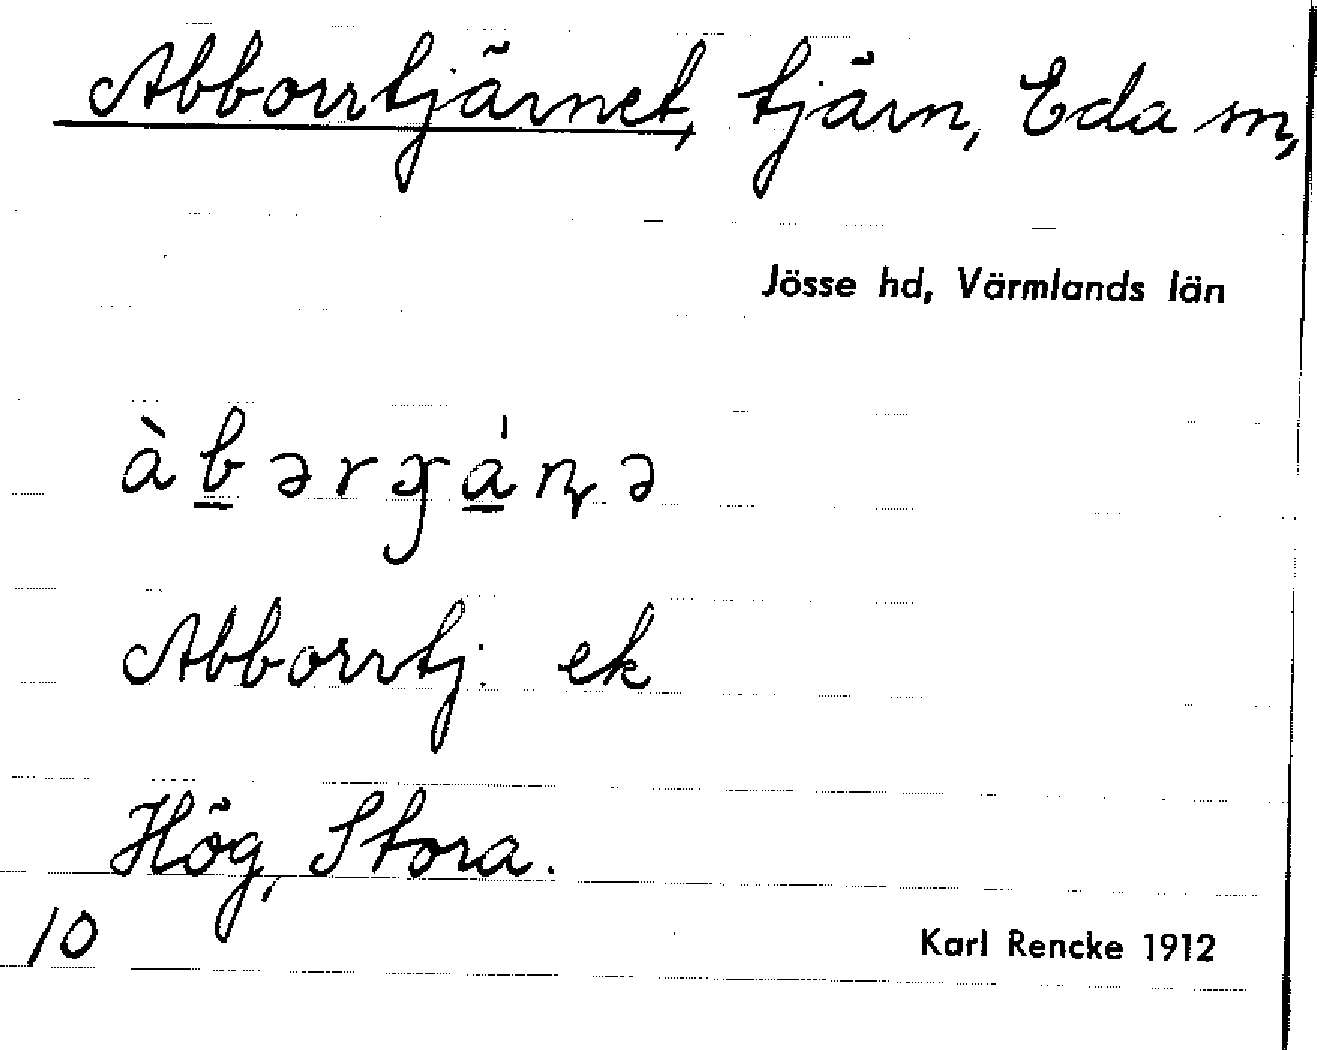 Abborrtjärnet, tjärn, Eda sn,
Jösse hd, Värmlands län
àb̲ərɟa̲̍ɳə
Abborrtj. ek
Hög, Stora.
10
Karl Rencke 1912